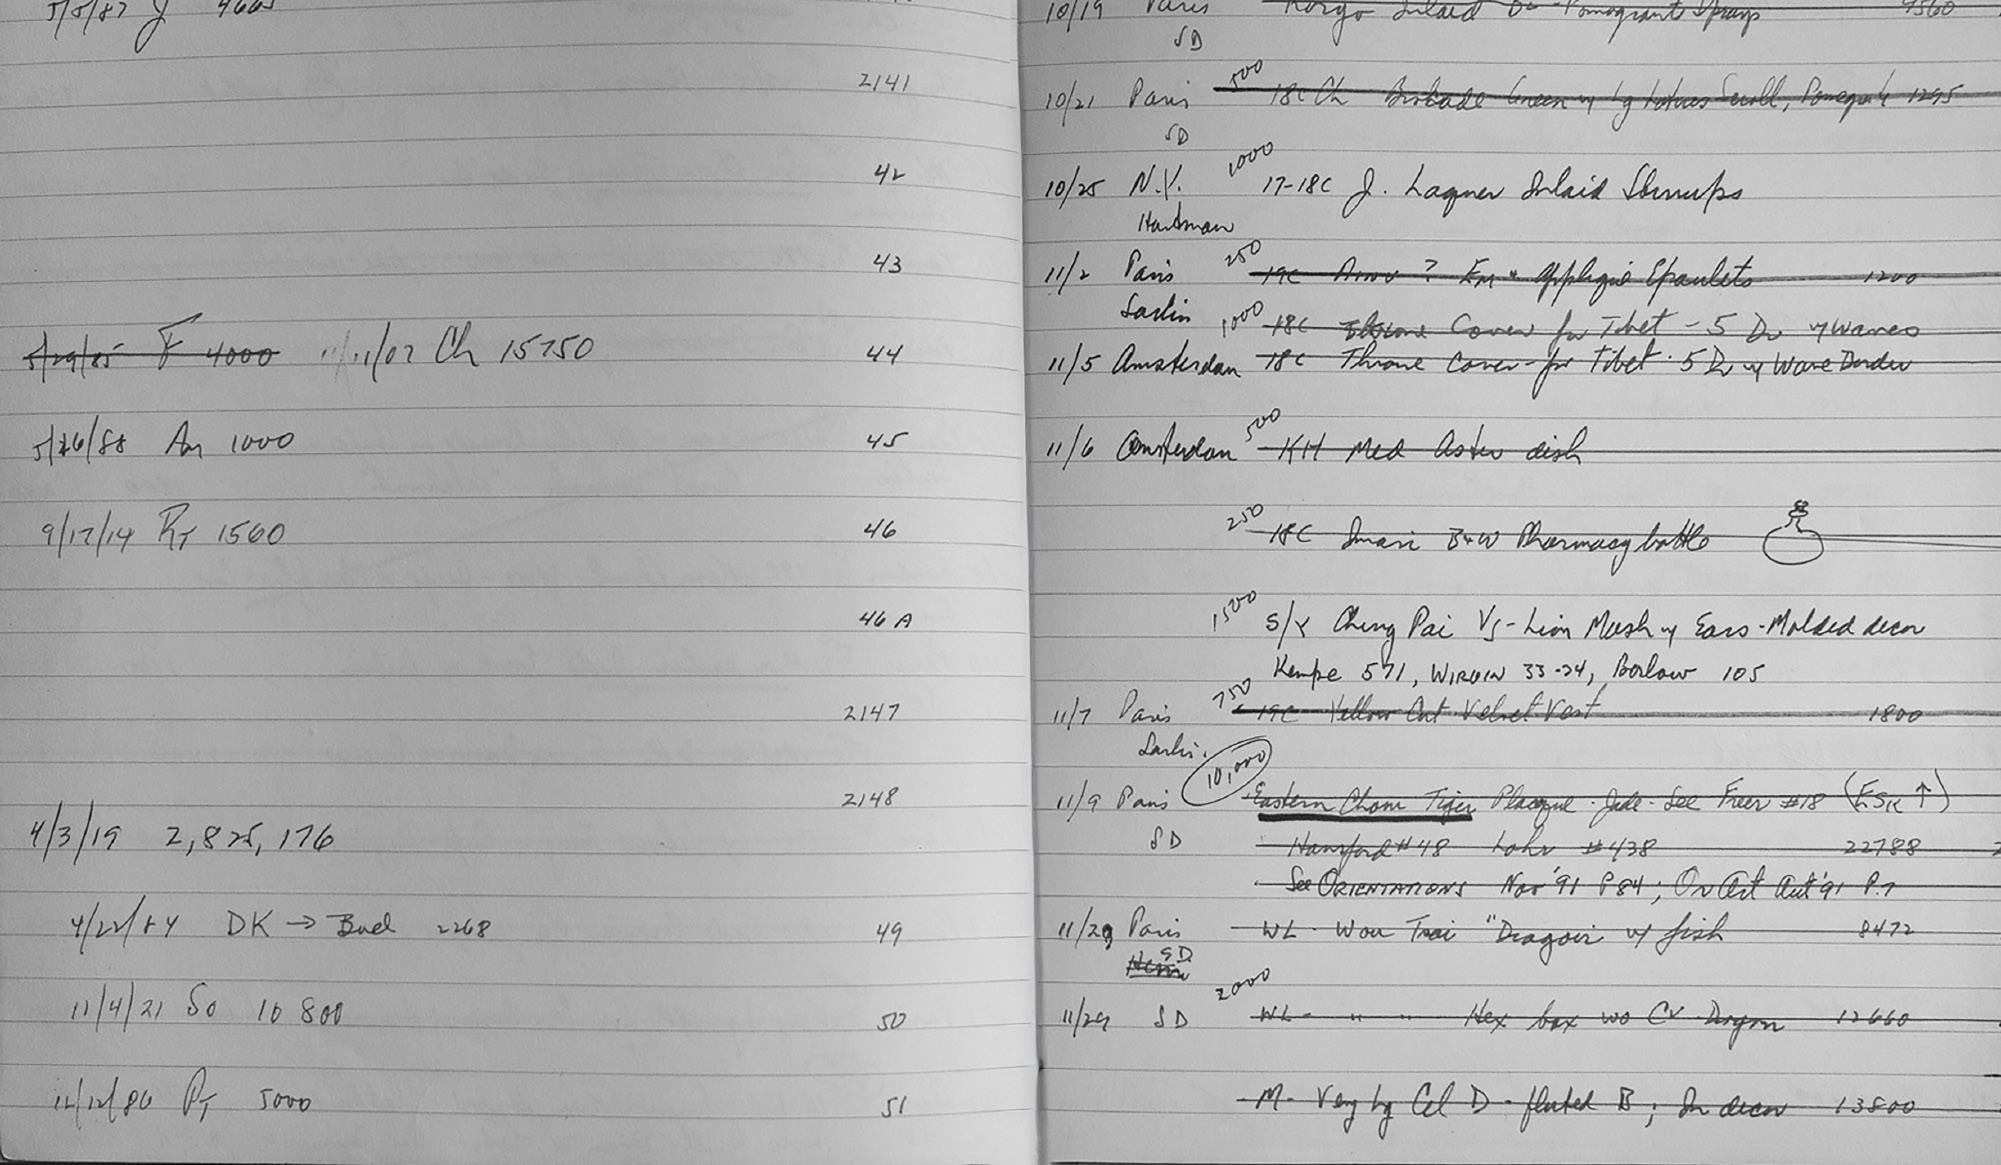 5/5/87 J 4665
2141
42
43
5/29/85 F 4000 11/11/07 Ch 15750 44
5/26/88 An 1000 45
9/17/14 RT 1560 46
46 A
2147
2148
4/3/19 2,825,176
4/22/84 DK → 2268 49
11/4/21 So 10 800 50
12/12/86 PT 5000 51
10/19 Paris Inlaid Sprays 9560
SD
10/21 Paris 500 18C Ch Brocade Green w lg Lotus Scroll, 1295
SD
10/25 N.Y. 1000 17-18C J. Laquer Inlaid Stirrups
Hartman
11/2 Paris 250 19C ? Appliqué Epaulets 1200
Sarkin 1000 18C Throne Cover for Tibet - 5 Dr w Waves
11/5 Amsterdam 18C Throne Cover - for Tibet - 5 Dr w Wave Border
11/6 Amsterdam 500 KH Med Aster dish
250 18C Imari B+W Pharmacy bottle
1500 S/Y Ching Pai Vs - Lion Mask w Ears - Molded decor
Kempe 571, 33-34, Barlow 105
11/7 Paris 750 19C Yellow Cut Velvet Vest 1800
11/9 Paris 10,000 Eastern Chou Tiger Plaque - Jade - See Freer #18 (ESK ↑)
SD Hansford #48 Lohr #438 22788
See ORIENTATIONS Nov '91 P 84; Or Art Aut '91 P.7
11/29 Paris WL - Wou Tsai "Dragoir w fish 8472
SD
11/29 SD 2000 WL - " " Hex box wo Cv Dragon 12660
M - Very lg Cel D - fluted B; In decor 13800